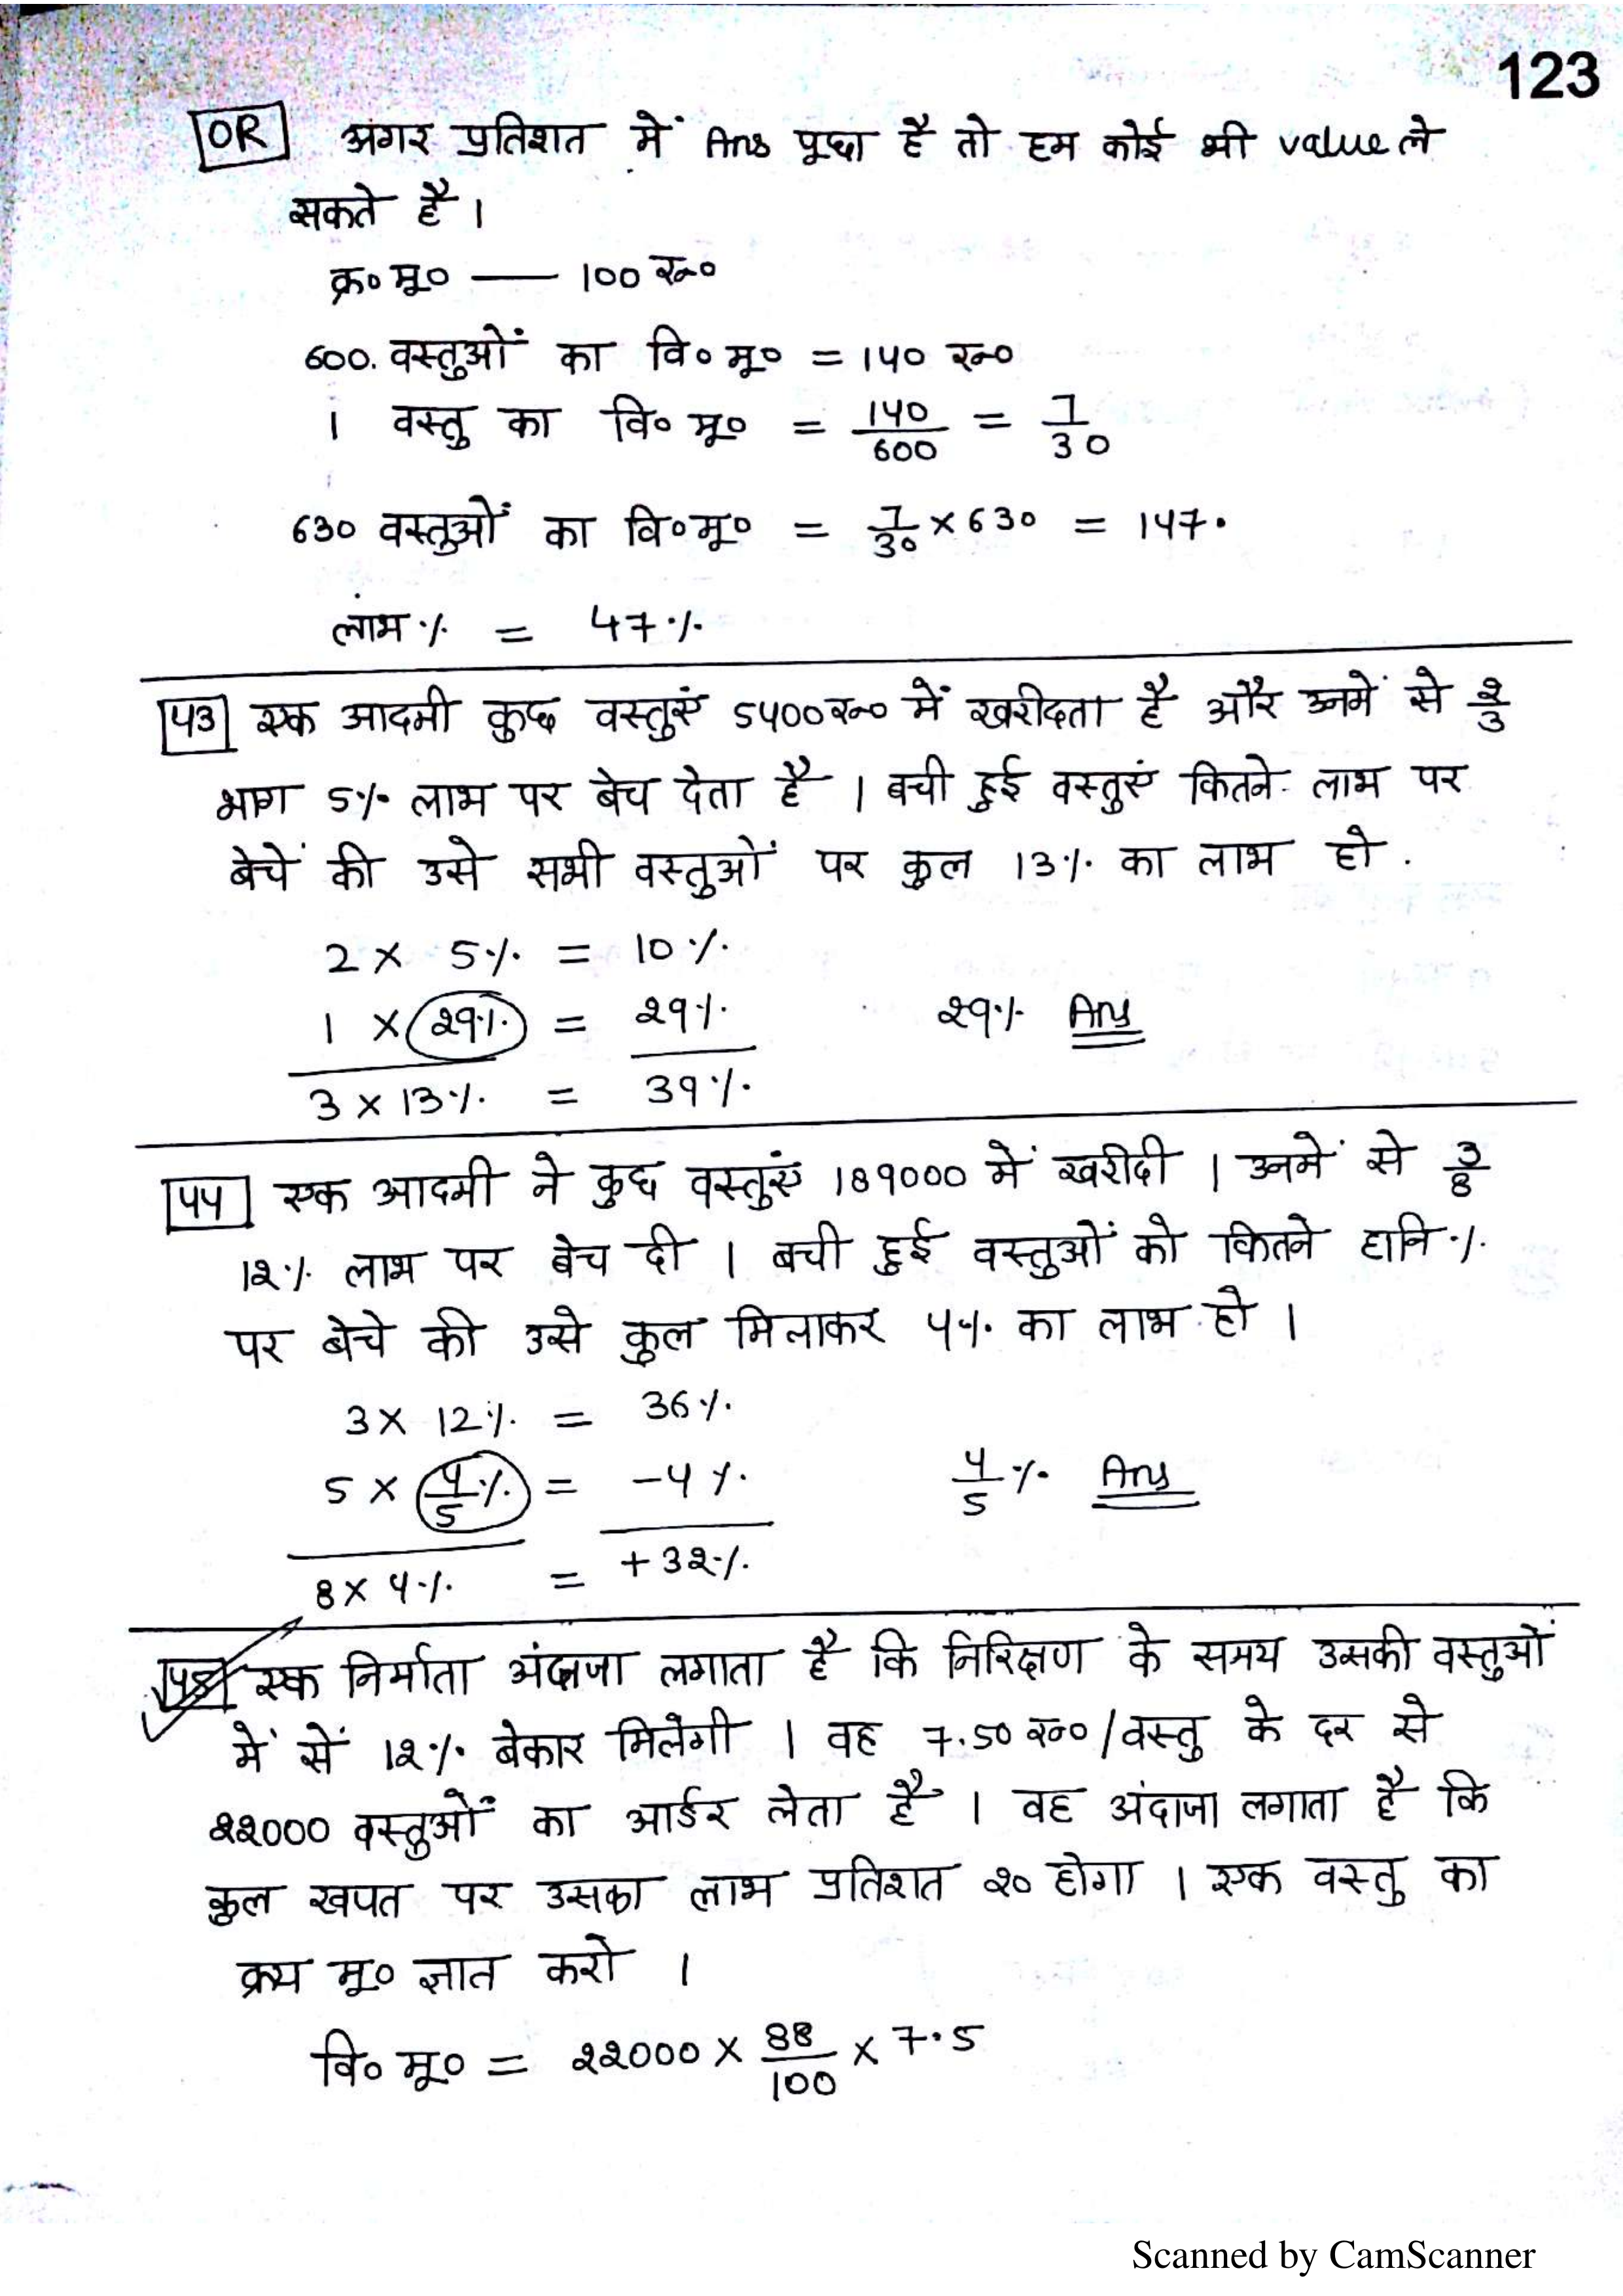 123
OR अगर प्रतिशत में Ans पूछा है तो हम कोई भी value ले
सकते है।
क्र० मू० — 100 रु०
600. वस्तुओं का वि० मू० = 140 रु०
1 वस्तु का वि० मू० = 140/600 = 7/30
630 वस्तुओं का वि० मू० = 7/30 × 630 = 147.
लाभ % = 47%
43 एक आदमी कुछ वस्तुएं 5400 रु० में खरीदता है और उनमें से 2/3
भाग 5% लाभ पर बेच देता है । बची हुई वस्तुएं कितने लाभ पर
बेचें की उसे सभी वस्तुओं पर कुल 13% का लाभ हो .
2 × 5% = 10%
1 × 29% = 29% 29% Ans
3 × 13% = 39%
44 एक आदमी ने कुछ वस्तुएं 189000 में खरीदी । उनमें से 3/8
12% लाभ पर बेच दी । बची हुई वस्तुओं को कितने हानि %
पर बेचे की उसे कुल मिलाकर 4% का लाभ हो ।
3 × 12% = 36%
5 × 4/5 % = -4% 4/5 % Ans
8 × 4% = +32%
45 एक निर्माता अंदाजा लगाता है कि निरिक्षण के समय उसकी वस्तुओं
में सें 12% बेकार मिलेगी । वह 7.50 रु०/वस्तु के दर से
22000 वस्तुओं का आर्डर लेता है । वह अंदाजा लगाता है कि
कुल खपत पर उसका लाभ प्रतिशत 20 होगा । एक वस्तु का
क्रय मू० ज्ञात करो ।
वि० मू० = 22000 × 88/100 × 7.5
Scanned by CamScanner